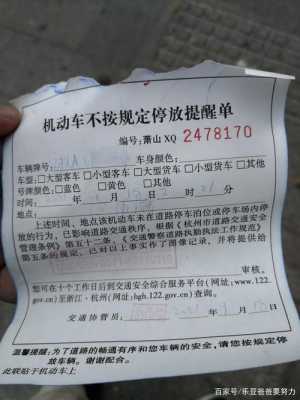 机动车不按规定停放提醒单
编号:萧山 XQ 2478170
车辆牌号: 车身颜色:
车型:□大型客车 □小型客车 □大型货车 □小型货车 □其他
号牌颜色:□蓝色 □黄色 □其他
时间: 时 21 分
地点:
上述时间、地点该机动车未在道路停车泊位或停车场内停
放的行为,已影响道路交通秩序,根据《杭州市道路交通安全
管理条例》第五十二条、《交通警察道路执勤执法工作规范》
第五条的规定,已对以上事实作了图像记录,并将提供给
审核。
您可在十个工作日后到交通安全综合服务平台(网址:www.122.
gov.cn)至浙江·杭州(网址:hgh.122.gov.cn)查询。
交通协管员: 2021 年 月 日
温馨提醒:为了道路的畅通有序和您车辆的安全,请您按规定停
放车辆。谢谢配合。
此联贴于机动车上
百家号/乐豆爸爸要努力